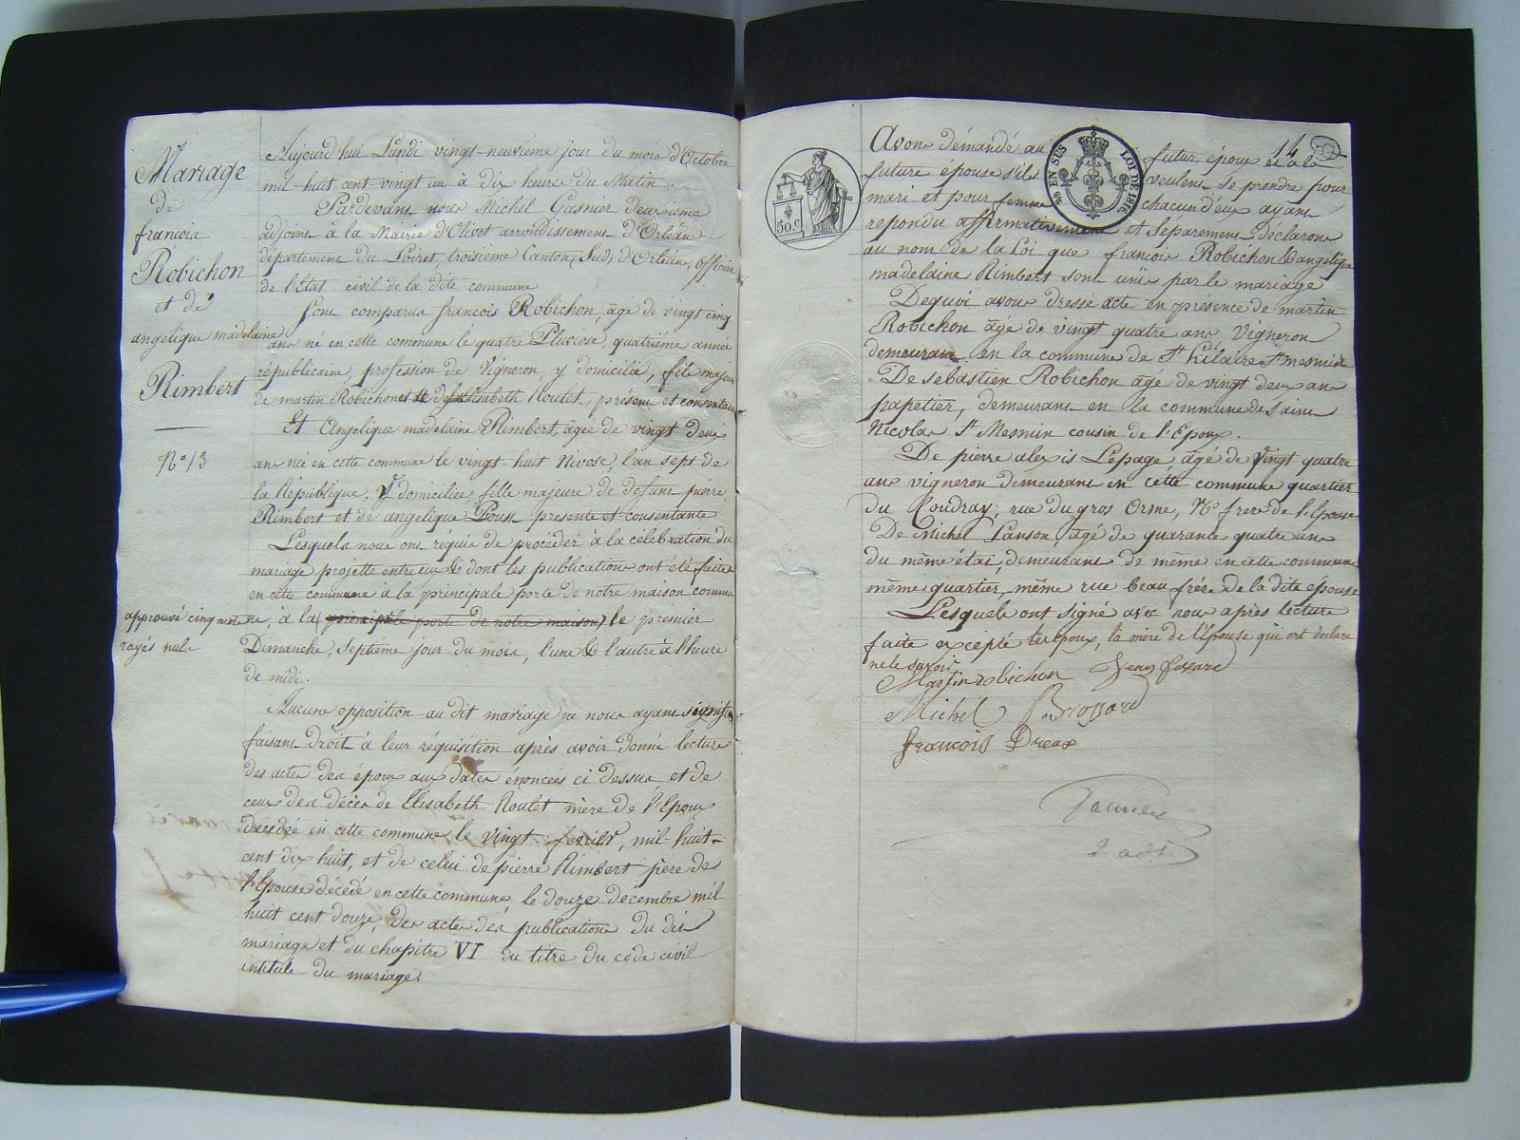 Mariage
de
francois
Robichon
et de
angelique madelaine
Rimbert
N° 13
approuvé cinq mots
rayés nuls
Aujourd'hui Lundi vingt-neuvième jour du mois d'Octobre
mil huit cent vingt un à dix heure du Matin.
Pardevant nous Michel Gasnier deuxième
adjoint à la Mairie d'Olivet arrondissement d'Orléans
département du Loiret, troisième Canton (Sud) d'Orléans, officier
de l'Etat civil de la dite commune
Sont comparus francois Robichon, âgé de vingt cinq
ans né en cette commune le quatre Pluviose, quatrième année
républicaine, profession de Vigneron, y domicilié, fils majeur
de martin Robichon et de Elisabeth Noulet, présent et consentant
Et Angelique madelaine Rimbert, agée de vingt deux
ans née en cette commune le vingt-huit Nivose, l'an sept de
la République, y domiciliée fille majeure de defunt pierre
Rimbert et de angelique presente et consentante
Lesquels nous ont requis de procéder à la celebration du
mariage projetté entre eux & dont les publications ont été faites
en cette commune à la principale porte de notre maison commu
ne, à la (principale porte de notre maison) le premier
Dimanche, septième jour du mois, l'une & l'autre à l'heure
de midi.
Aucune opposition au dit mariage ne nous ayant signifié
faisant droit à leur réquisition après avoir donné lecture
des actes des époux aux dates énoncées ci dessus et de
ceux des décès de Elisabeth Noulet mère de l'Epoux
decedée en cette commune, le vingt fevrier, mil-huit-
cent dix huit, et de celui de pierre Rimbert père de
l'Epouse décédé en cette commune, le douze decembre mil
huit cent douze, des actes des publications du dit
mariage et du chapitre VI du titre du code civil
intitulé du mariage
14
50.c
EN SUS
LOI DE 1816
Avons démandé au futur époux et à la
future épouse s'ils veulent se prendre pour
mari et pour femme chacun d'eux ayant
repondu affirmativement et séparement Déclarons
au nom de la Loi que francois Robichon & angelique
madelaine Rimbert sont unis par le mariage
De quoi avons dressé acte en présence de martin
Robichon âgé de vingt quatre ans Vigneron
demeurant en la commune de St hilaire St mesmin
De sebastien Robichon âgé de vingt deux ans
papetier, demeurant en la commune de Saint
Nicolas St Mesmin cousin de l'Epoux.
De pierre alexis Lepage âgé de Vingt quatre
ans vigneron demeurant en cette commune quartier
du Coudray, rue du gros Orme, frere de l'Epouse
De Michel Sanson, âgé de quarante quatre ans
du même état, demeurant de même en cette commune
même quartier, même rue beau frère de la dite epouse
Lesquels ont signé avec nous après lecture
faite excepté les époux, la mère de l'épouse qui ont declaré
ne le savoir
Martin robichon
Michel Brossard
francois Dreux